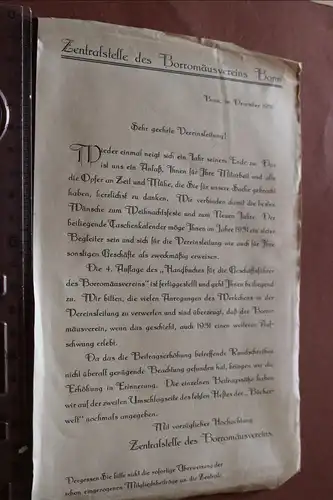 Zentralstelle des Borromäusvereins Bonn
Bonn, im Dezember 1930
Sehr geehrte Vereinsleitung!
Wieder einmal neigt sich ein Jahr seinem Ende zu. Dies
ist uns ein Anlaß, Ihnen für Ihre Mitarbeit und alle
die Opfer an Zeit und Mühe, die Sie für unsere Sache gebracht
haben, herzlichst zu danken. Wir verbinden damit die besten
Wünsche zum Weihnachtsfeste und zum Neuen Jahre. Der
beiliegende Taschenkalender möge Ihnen im Jahre 1931 ein steter
Begleiter sein und sich für die Vereinsleitung wie auch für Ihre
sonstigen Geschäfte als zweckmäßig erweisen.
Die 4. Auflage des „Handbuches für die Geschäftsführer
des Borromäusvereins“ ist fertiggestellt und geht Ihnen beiliegend
zu. Wir bitten, die vielen Anregungen des Werkchens in der
Vereinsleitung zu verwerten und sind überzeugt, daß der Borro-
mäusverein, wenn das geschieht, auch 1931 einen weiteren Auf-
schwung erlebt.
Da das die Beitragserhöhung betreffende Rundschreiben
nicht überall genügende Beachtung gefunden hat, bringen wir die
Erhöhung in Erinnerung. Die einzelnen Beitragssätze haben
wir auf der zweiten Umschlagseite des letzten Heftes der „Bücher-
welt“ nochmals angegeben.
Mit vorzüglicher Hochachtung
Zentralstelle des Borromäusvereins
Vergessen Sie bitte nicht die sofortige Überweisung der
schon eingezogenen Mitgliedsbeiträge an die Zentrale